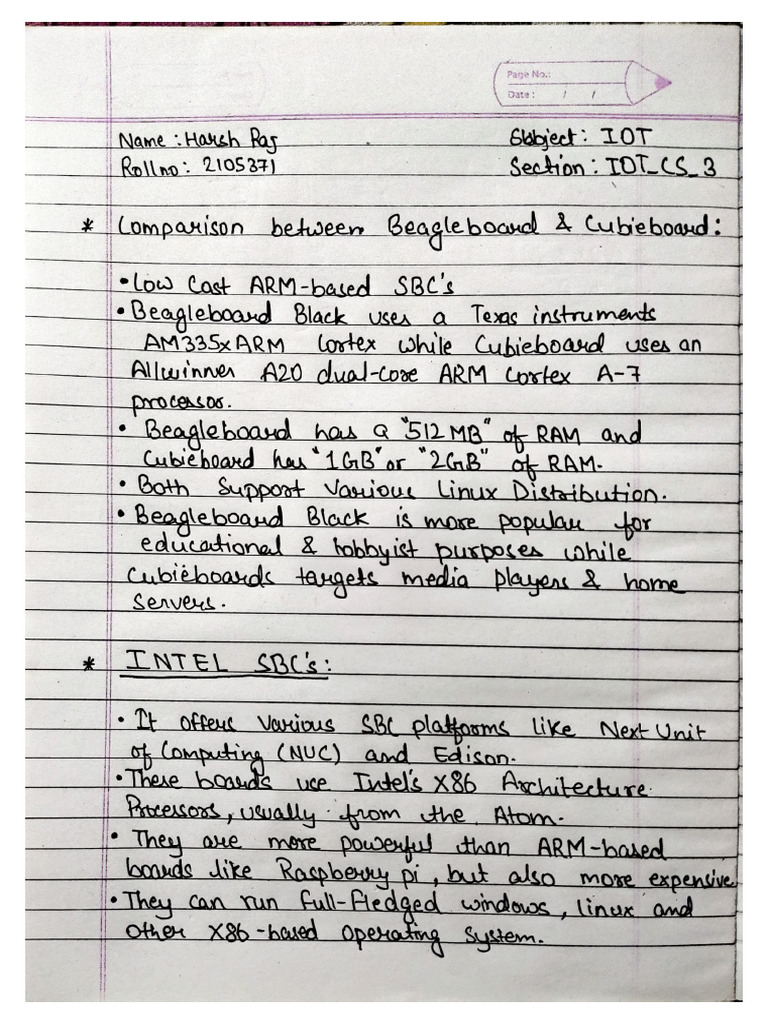 Page No.:
Date : / /
Name : Harsh Raj
Subject : IOT
Rollno : 2105371
Section : IOT_CS_3
* Comparison between Beagleboard & Cubieboard :
• Low Cost ARM-based SBC's
• Beagleboard Black uses a Texas instruments
AM335x ARM Cortex while Cubieboard uses an
Allwinner A20 dual-core ARM Cortex A-7
processor.
• Beagleboard has a "512 MB" of RAM and
Cubieboard has "1GB" or "2GB" of RAM.
• Both Support Various Linux Distribution.
• Beagleboard Black is more popular for
educational & hobbyist purposes while
Cubieboards targets media players & home
servers.
* INTEL SBC's :
• It offers various SBC platforms like Next Unit
of Computing (NUC) and Edison.
• These boards use Intel's X86 Architecture
Processors, usually from the Atom.
• They are more powerful than ARM-based
boards like Raspberry pi, but also more expensive
• They can run full-fledged windows, linux and
other X86-based operating system.